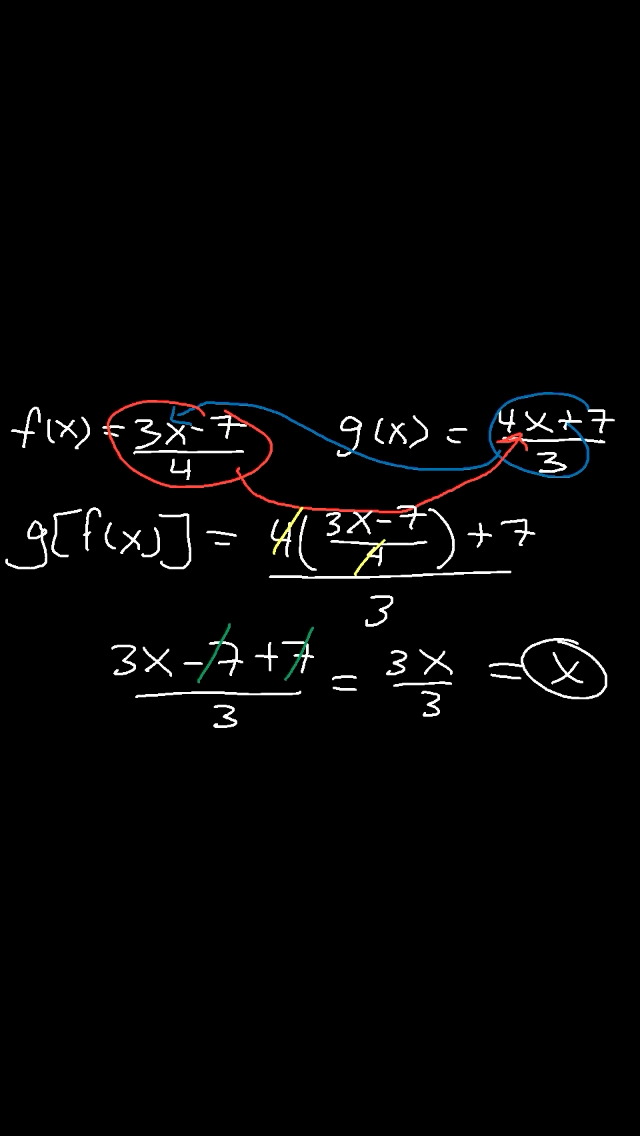 f(x) = (3x-7)/4    g(x) = (4x+7)/3
g[f(x)] = (4((3x-7)/4)+7)/3
(3x-7+7)/3 = 3x/3 = x